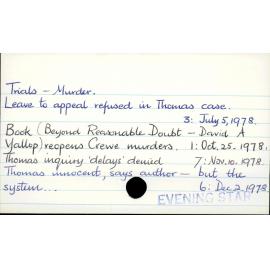 Trials – Murder.
Leave to appeal refused in Thomas case.
3: July 5, 1978.
Book (Beyond Reasonable Doubt – David A
Yallop) reopens Crewe murders. 1: Oct. 25. 1978.
Thomas inquiry 'delays' denied 7: Nov. 10. 1978.
Thomas innocent, says author – but the
system... 6: Dec 2. 1978.
EVENING STAR